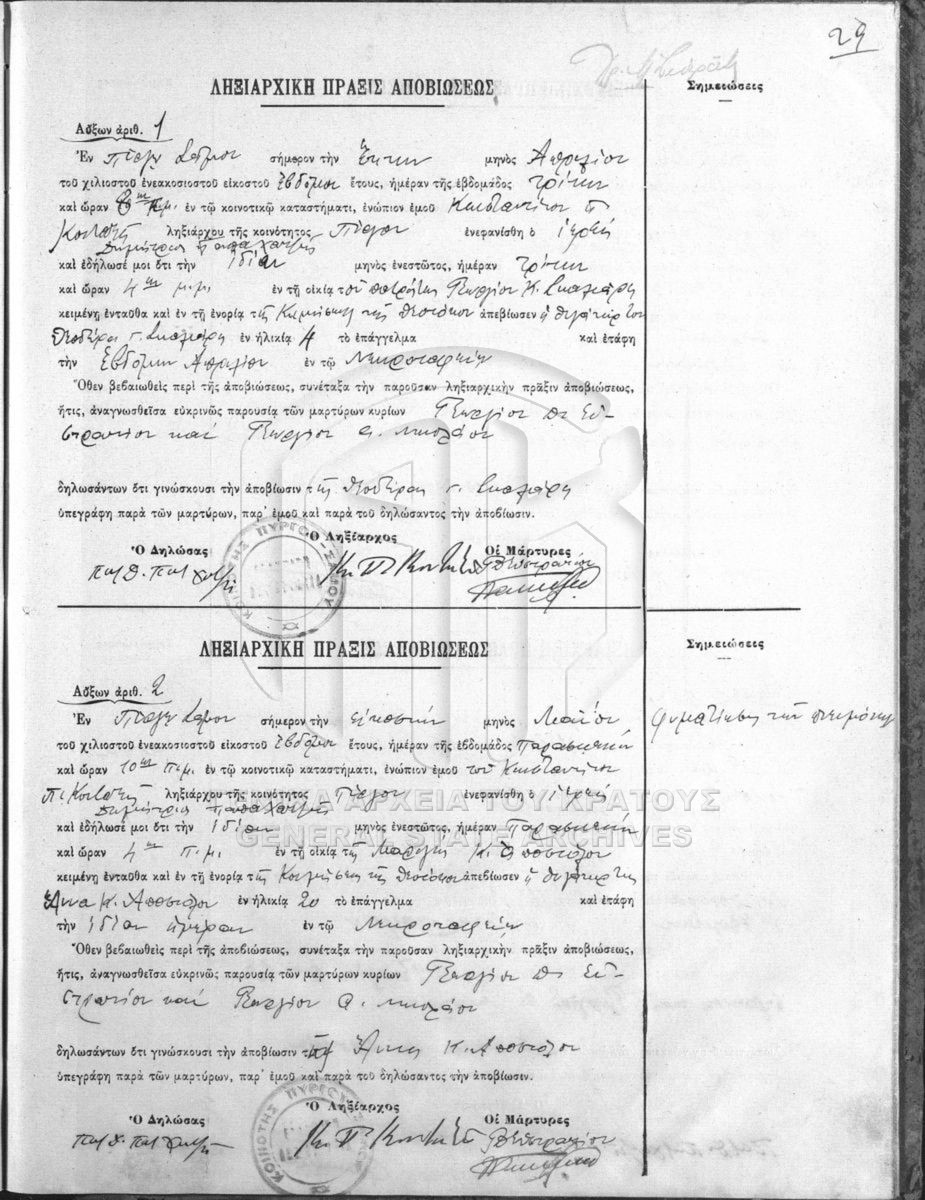 29
ΛΗΞΙΑΡΧΙΚΗ ΠΡΑΞΙΣ ΑΠΟΒΙΩΣΕΩΣ
Σημειώσεις
Αὔξων ἀριθ. 1
Ἐν Πύργῳ Σάμου σήμερον τὴν Ἕκτην μηνὸς Ἀπριλίου
τοῦ χιλιοστοῦ ἐνεακοσιοστοῦ εἰκοστοῦ ἑβδόμου ἔτους, ἡμέραν τῆς ἑβδομάδος τρίτην
καὶ ὥραν π.μ. ἐν τῷ κοινοτικῷ καταστήματι, ἐνώπιον ἐμοῦ Κωνσταντίνου Π
ληξιάρχου τῆς κοινότητος Πύργου ἐνεφανίσθη ὁ ἱερεὺς
Δημήτριος
καὶ ἐδήλωσέ μοι ὅτι τὴν ἰδίαν μηνὸς ἐνεστῶτος, ἡμέραν τρίτην
καὶ ὥραν 4ην μ.μ. ἐν τῇ οἰκίᾳ τοῦ πατρὸς της Γεωργίου Κ.
κειμένῃ ἐνταῦθα καὶ ἐν τῇ ἐνορίᾳ τῆς Κοιμήσεως τῆς Θεοτόκου ἀπεβίωσεν ἡ θυγάτηρ του
Γ. ἐν ἡλικίᾳ 4 τὸ ἐπάγγελμα καὶ ἐτάφη
τὴν Ἑβδόμην Ἀπριλίου ἐν τῷ Νεκροταφείῳ
Ὅθεν βεβαιωθεὶς περὶ τῆς ἀποβιώσεως, συνέταξα τὴν παροῦσαν ληξιαρχικὴν πρᾶξιν ἀποβιώσεως,
ἥτις, ἀναγνωσθεῖσα εὐκρινῶς παρουσίᾳ τῶν μαρτύρων κυρίων Γεωργίου Θ. Εὐ-
στρατίου καὶ Γεωργίου Α. Νικολάου
δηλωσάντων ὅτι γινώσκουσι τὴν ἀποβίωσιν τῆς Γ.
ὑπεγράφη παρὰ τῶν μαρτύρων, παρ' ἐμοῦ καὶ παρὰ τοῦ δηλώσαντος τὴν ἀποβίωσιν.
Ὁ Δηλώσας Ὁ Ληξίαρχος Οἱ Μάρτυρες
ΚΟΙΝΟΤΗΣ ΠΥΡΓΟΥ-ΣΑΜΟΥ
ΛΗΞΙΑΡΧΙΚΗ ΠΡΑΞΙΣ ΑΠΟΒΙΩΣΕΩΣ
Σημειώσεις
Αὔξων ἀριθ. 2
Ἐν Πύργῳ Σάμου σήμερον τὴν εἰκοστὴν μηνὸς Μαΐου
φυματίωσις τῶν πνευμόνων
τοῦ χιλιοστοῦ ἐνεακοσιοστοῦ εἰκοστοῦ ἑβδόμου ἔτους, ἡμέραν τῆς ἑβδομάδος Παρασκευὴν
καὶ ὥραν 10ην π.μ. ἐν τῷ κοινοτικῷ καταστήματι, ἐνώπιον ἐμοῦ τοῦ Κωνσταντίνου
Π. ληξιάρχου τῆς κοινότητος Πύργου ἐνεφανίσθη ὁ ἱερεὺς
Δημήτριος
καὶ ἐδήλωσέ μοι ὅτι τὴν ἰδίαν μηνὸς ἐνεστῶτος, ἡμέραν Παρασκευὴν
καὶ ὥραν 4ην π.μ. ἐν τῇ οἰκίᾳ τῆς Κ. Ἀποστόλου
κειμένῃ ἐνταῦθα καὶ ἐν τῇ ἐνορίᾳ τῆς Κοιμήσεως τῆς Θεοτόκου ἀπεβίωσεν ἡ θυγάτηρ της
Ἄννα Κ. Ἀποστόλου ἐν ἡλικίᾳ 20 τὸ ἐπάγγελμα καὶ ἐτάφη
τὴν ἰδίαν ἡμέραν ἐν τῷ Νεκροταφείῳ
Ὅθεν βεβαιωθεὶς περὶ τῆς ἀποβιώσεως, συνέταξα τὴν παροῦσαν ληξιαρχικὴν πρᾶξιν ἀποβιώσεως,
ἥτις, ἀναγνωσθεῖσα εὐκρινῶς παρουσίᾳ τῶν μαρτύρων κυρίων Γεωργίου Θ. Εὐ-
στρατίου καὶ Γεωργίου Α. Νικολάου
δηλωσάντων ὅτι γινώσκουσι τὴν ἀποβίωσιν τῆς Ἄννης Κ. Ἀποστόλου
ὑπεγράφη παρὰ τῶν μαρτύρων, παρ' ἐμοῦ καὶ παρὰ τοῦ δηλώσαντος τὴν ἀποβίωσιν.
Ὁ Δηλώσας Ὁ Ληξίαρχος Οἱ Μάρτυρες
ΚΟΙΝΟΤΗΣ ΠΥΡΓΟΥ
ΓΕΝΙΚΑ ΑΡΧΕΙΑ ΤΟΥ ΚΡΑΤΟΥΣ
GENERAL STATE ARCHIVES